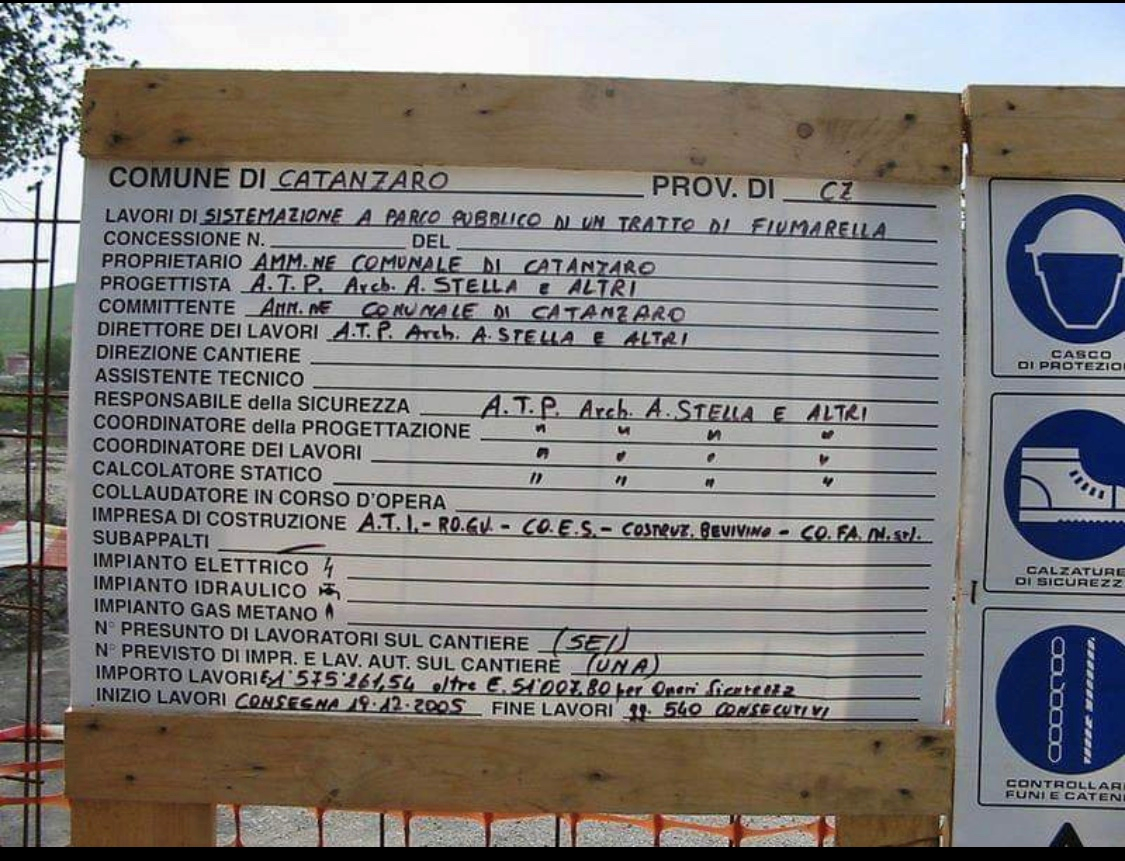 COMUNE DI CATANZARO PROV. DI CZ
LAVORI DI SISTEMAZIONE A PARCO PUBBLICO DI UN TRATTO DI FIUMARELLA
CONCESSIONE N. DEL
PROPRIETARIO AMM.NE COMUNALE DI CATANZARO
PROGETTISTA A.T.P. Arch. A. STELLA e ALTRI
COMMITTENTE AMM.NE COMUNALE DI CATANZARO
DIRETTORE DEI LAVORI A.T.P. Arch. A. STELLA E ALTRI
DIREZIONE CANTIERE
ASSISTENTE TECNICO
RESPONSABILE della SICUREZZA A.T.P. Arch. A. STELLA E ALTRI
COORDINATORE della PROGETTAZIONE " " " "
COORDINATORE DEI LAVORI " " " "
CALCOLATORE STATICO " " " "
COLLAUDATORE IN CORSO D'OPERA
IMPRESA DI COSTRUZIONE A.T.I. - RO.GU - CO.E.S. - COSTRUZ. BEVIVINO - CO.FA.IN. srl.
SUBAPPALTI
IMPIANTO ELETTRICO
IMPIANTO IDRAULICO
IMPIANTO GAS METANO
N° PRESUNTO DI LAVORATORI SUL CANTIERE (SEI)
N° PREVISTO DI IMPR. E LAV. AUT. SUL CANTIERE (UNA)
IMPORTO LAVORI €1'575'261,54 oltre €. 51'007,80 per Oneri Sicurezza
INIZIO LAVORI CONSEGNA 19.12.2005 FINE LAVORI gg. 540 CONSECUTIVI
CASCO
DI PROTEZIO
CALZATURE
DI SICUREZZ
CONTROLLARE
FUNI E CATENE